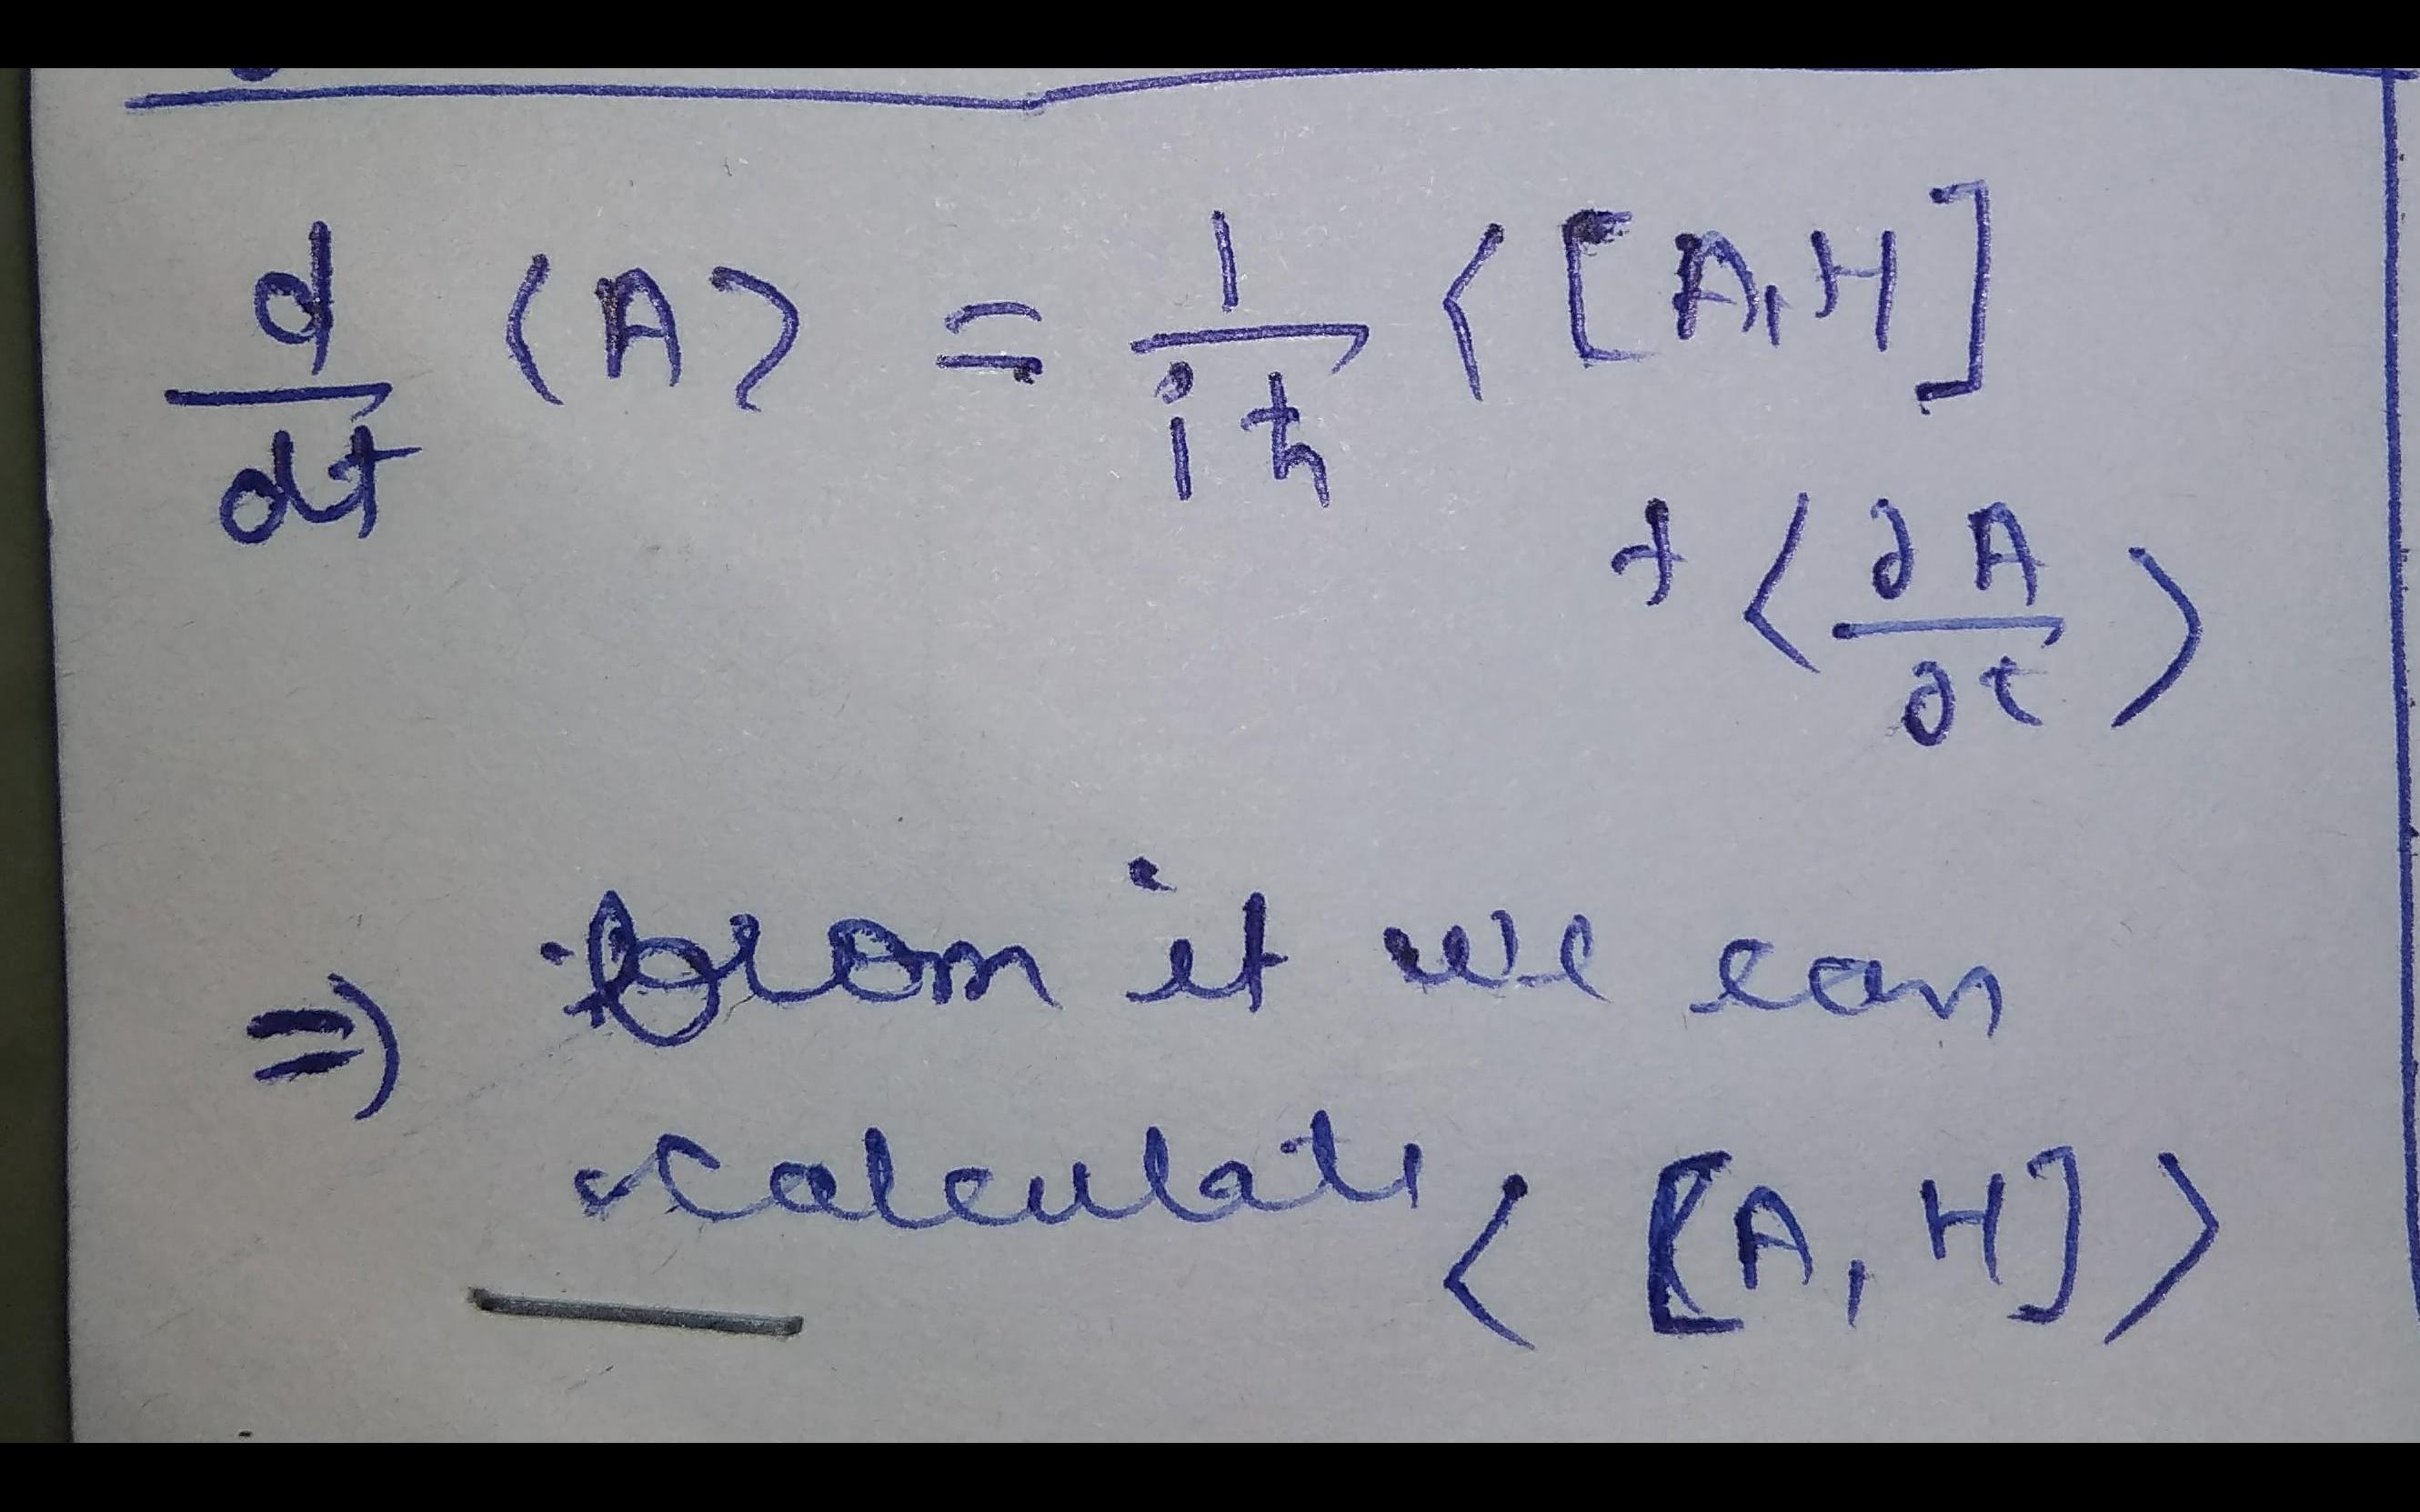 d/dt ⟨A⟩ = 1/iħ ⟨[A,H]
+ ⟨∂A/∂t⟩
⇒ from it we can
calculate ⟨[A,H]⟩